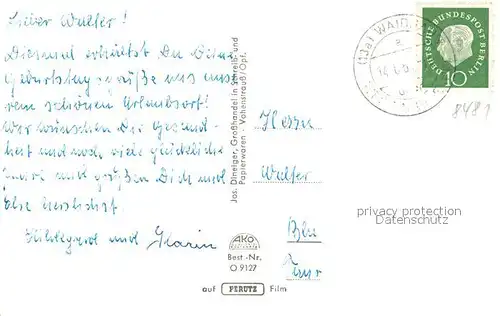 Lieber Walter!
Diesmal erhältst Du Deine
Geburtstagsgrüße aus unse-
rem schönen Urlaubsort!
Wir wünschen Dir Gesund-
heit und noch viele glückliche
Jahre und grüßen Dich und
Else herzlichst
Hildegard und Karin
Jos. Dineiger, Großhandel in Schreib- und
Papierwaren - Vohenstrauß/Opf.
AKO
Best.-Nr.
O 9127
auf PERUTZ Film
(13a) WAID
DEUTSCHE BUNDESPOST BERLIN
10
8481
Herrn
Walter
privacy protection
Datenschutz